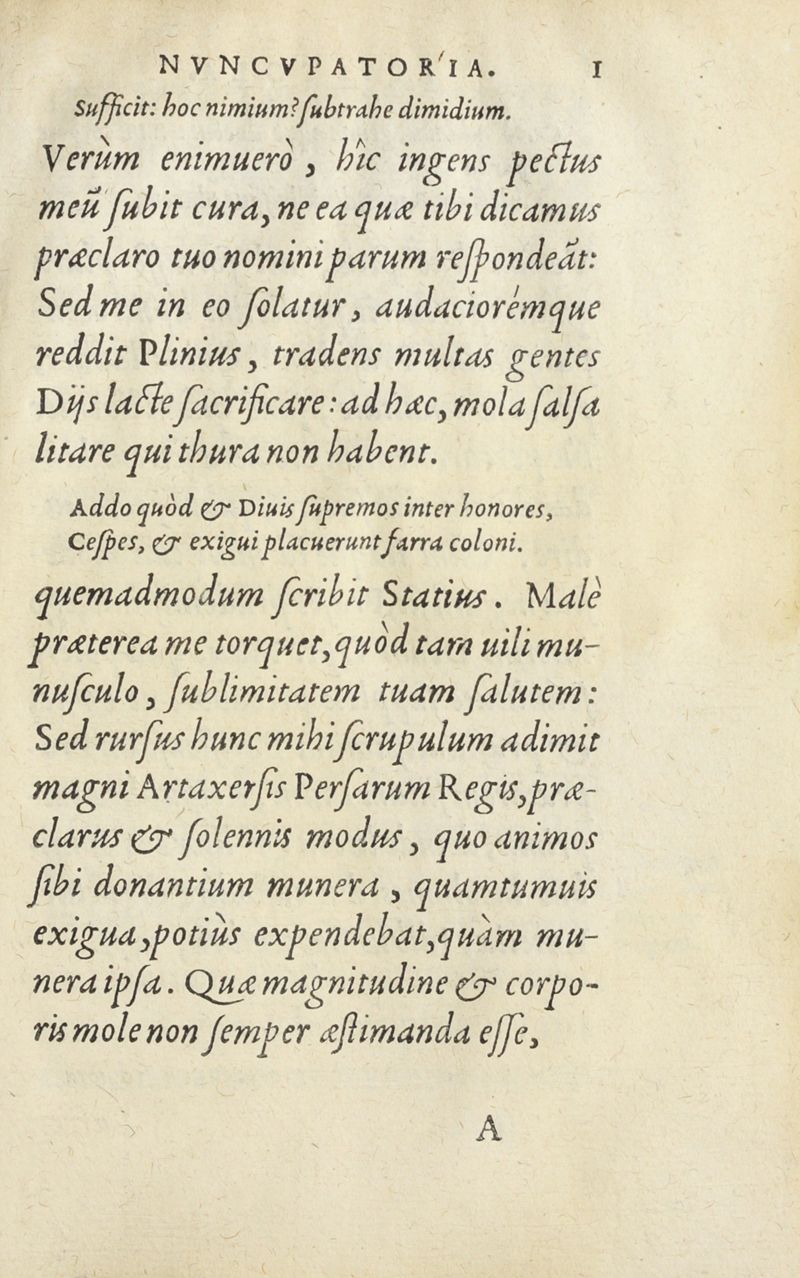 NVNCVPATORIA. I
Sufficit: hoc nimium? ſubtrahe dimidium.
Verùm enimuerò, hîc ingens pectus
meũ ſubit cura, ne ea quæ tibi dicamus
præclaro tuo nomini parum reſpondeãt:
Sed me in eo ſolatur, audaciorémque
reddit Plinius, tradens multas gentes
Dijs lacte ſacrificare: ad hæc, mola ſalſa
litare qui thura non habent.
Addo quòd & Diuis ſupremos inter honores,
Ceſpes, & exigui placuerunt farra coloni.
quemadmodum ſcribit Statius. Malè
præterea me torquet, quòd tam uili mu-
nuſculo, ſublimitatem tuam ſalutem:
Sed rurſus hunc mihi ſcrupulum adimit
magni Artaxerſis Perſarum Regis, præ-
clarus & ſolennis modus, quo animos
ſibi donantium munera, quamtumuis
exigua, potiùs expendebat, quàm mu-
nera ipſa. Quæ magnitudine & corpo-
ris mole non ſemper æſtimanda eſſe,
A